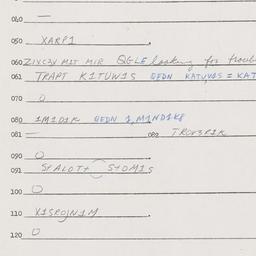 040 —
050 XARP1
060 ZIXCZV MIT MIR QGLE looking for
061 TRAPT K1TUW1S GEDN KATUV1S = KAT
070 0
080 1M1D1K GEDN 1,M1ND1K8
081 — 089 TROV3R1K
090 0
091 S+ALOT+ S+OM1S
100 0
110 X1SROJN1M
120 0